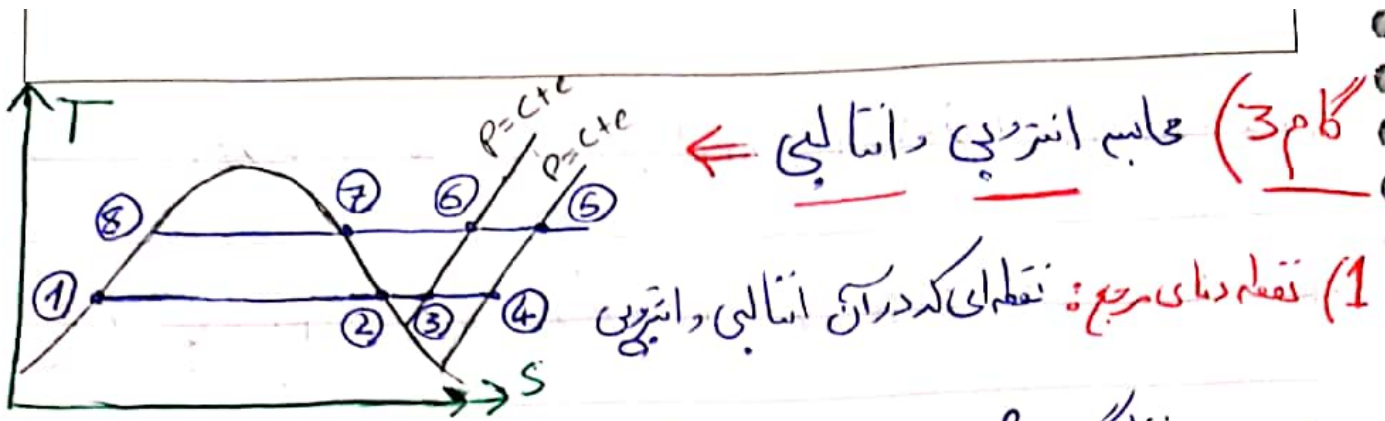 گام 3) محاسبه انتروپی و انتالپی ⇐
1) نقطه دمای مرجع: نقطه‌ای که در آن انتالپی و انتروپی
T
P=cte
P=cte
8
7
6
5
1
2
3
4
S